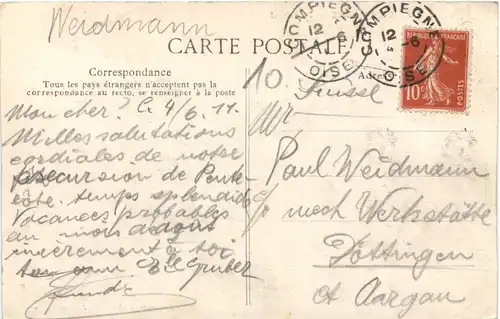 Weidmann
CARTE POSTALE
Correspondance
Tous les pays étrangers n'acceptent pas la
correspondance au recto, se renseigner à la poste
Adresse
COMPIEGNE
12
6
OISE
COMPIEGNE
12
6
OISE
REPUBLIQUE FRANÇAISE
10c
POSTES
Suisse
Mon cher! C. 4/6.11.
Milles salutations
cordiales de notre
excursion de Pente-
côte. temps splendide
Vacances probables
au mois d'août
sincèrement à toi
Gruber
Mr.
Paul Weidmann
mech Werkstätte
Döttingen
Ct Aargau